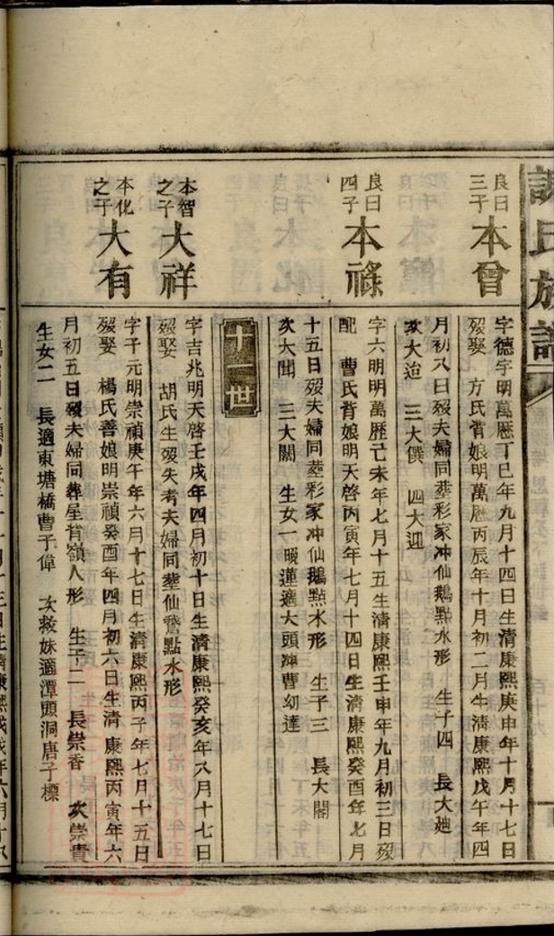 譚氏族譜
良曰三子 本曾
字德字明萬歷丁巳年九月十四日生清康熙庚申年十月十七日
歿娶 方氏肯娘明萬歷丙辰年十月初二月生清康熙戊午年四
月初八日歿夫婦同塟彩家冲仙鵝點水形 生子四 長大廸
次大治 三大僎 四大迎
良曰四子 本祿
字六明明萬歷己未年七月十五生清康熙壬申年九月初三日歿
配 曹氏肯娘明天啓丙寅年七月十四日生清康熙癸酉年七月
十五日歿夫婦同塟彩家冲仙鵝點水形 生子三 長大閣
次大聞 三大閣 生女一暖蓮適大頭冲曹幼達
十一世
本智之子 大祥
字吉兆明天啓壬戌年四月初十日生清康熙癸亥年八月十七日
歿娶 胡氏生歿失考夫婦同塟仙鵞點水形
本化之子 大有
字千元明崇禎庚午年六月十七日生清康熙丙子年七月十五日
歿娶 楊氏善娘明崇禎癸酉年四月初六日生清康熙丙寅年六
月初五日歿夫婦同葬星背嶺人形 生子二 長崇香 次崇貴
生女二 長適東塘橋曹子偉 次救妹適潭頭洞唐子標